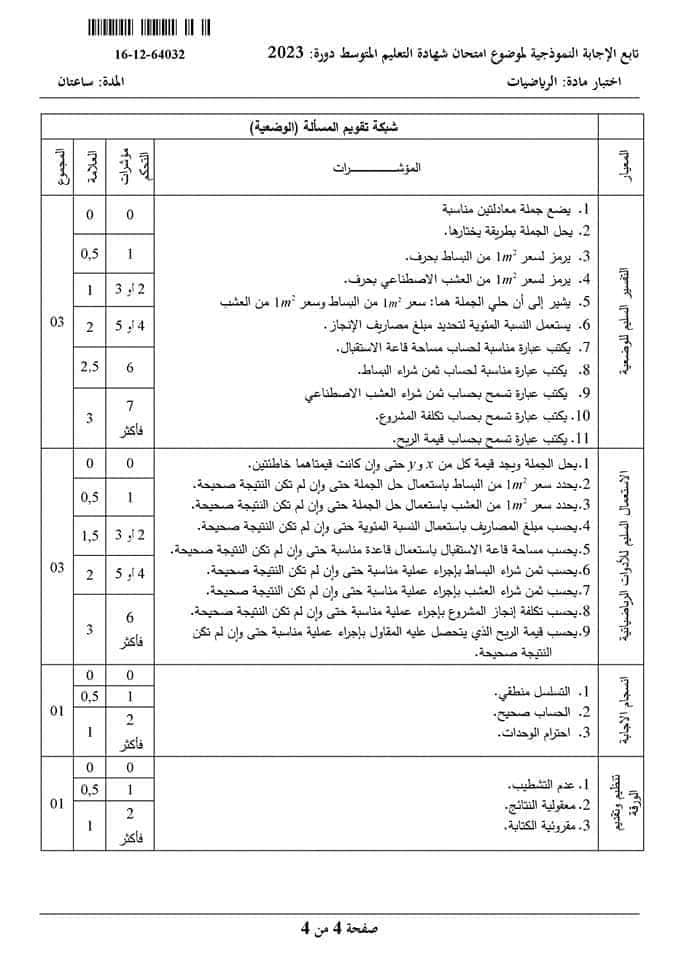 16-12-64032
تابع الإجابة النموذجية لموضوع امتحان شهادة التعليم المتوسط دورة: 2023
اختبار مادة: الرياضيات
المدة: ساعتان
شبكة تقويم المسألة (الوضعية)
المعيار
المؤشـــــــــــرات
مؤشرات التحكم
العلامة
المجموع
التفسير السليم للوضعية
1. يضع جملة معادلتين مناسبة
2. يحل الجملة بطريقة يختارها.
3. يرمز لسعر 1m² من البساط بحرف.
4. يرمز لسعر 1m² من العشب الاصطناعي بحرف.
5. يشير إلى أن حلي الجملة هما: سعر 1m² من البساط وسعر 1m² من العشب
6. يستعمل النسبة المئوية لتحديد مبلغ مصاريف الإنجاز.
7. يكتب عبارة مناسبة لحساب مساحة قاعة الاستقبال.
8. يكتب عبارة مناسبة لحساب ثمن شراء البساط.
9. يكتب عبارة تسمح بحساب ثمن شراء العشب الاصطناعي
10. يكتب عبارة تسمح بحساب تكلفة المشروع.
11. يكتب عبارة تسمح بحساب قيمة الربح.
0 0
1 0,5
2 او 3 1
4 او 5 2
6 2.5
7 فأكثر 3
03
الاستعمال السليم للأدوات الرياضياتية
1.يحل الجملة ويجد قيمة كل من x و y حتى وإن كانت قيمتاهما خاطئتين.
2.يحدد سعر 1m² من البساط باستعمال حل الجملة حتى وإن لم تكن النتيجة صحيحة.
3.يحدد سعر 1m² من العشب باستعمال حل الجملة حتى وإن لم تكن النتيجة صحيحة.
4.يحسب مبلغ المصاريف باستعمال النسبة المئوية حتى وإن لم تكن النتيجة صحيحة.
5.يحسب مساحة قاعة الاستقبال باستعمال قاعدة مناسبة حتى وإن لم تكن النتيجة صحيحة.
6.يحسب ثمن شراء البساط بإجراء عملية مناسبة حتى وإن لم تكن النتيجة صحيحة.
7.يحسب ثمن شراء العشب بإجراء عملية مناسبة حتى وإن لم تكن النتيجة صحيحة.
8.يحسب تكلفة إنجاز المشروع بإجراء عملية مناسبة حتى وإن لم تكن النتيجة صحيحة.
9.يحسب قيمة الربح الذي يتحصل عليه المقاول بإجراء عملية مناسبة حتى وإن لم تكن
النتيجة صحيحة.
0 0
1 0,5
2 او 3 1,5
4 او 5 2
6 فأكثر 3
03
انسجام الاجابة
1. التسلسل منطقي.
2. الحساب صحيح.
3. احترام الوحدات.
0 0
1 0,5
2 فأكثر 1
01
تنظيم وتقديم الورقة
1. عدم التشطيب.
2. معقولية النتائج.
3. مقروئية الكتابة.
0 0
1 0,5
2 فأكثر 1
01
صفحة 4 من 4